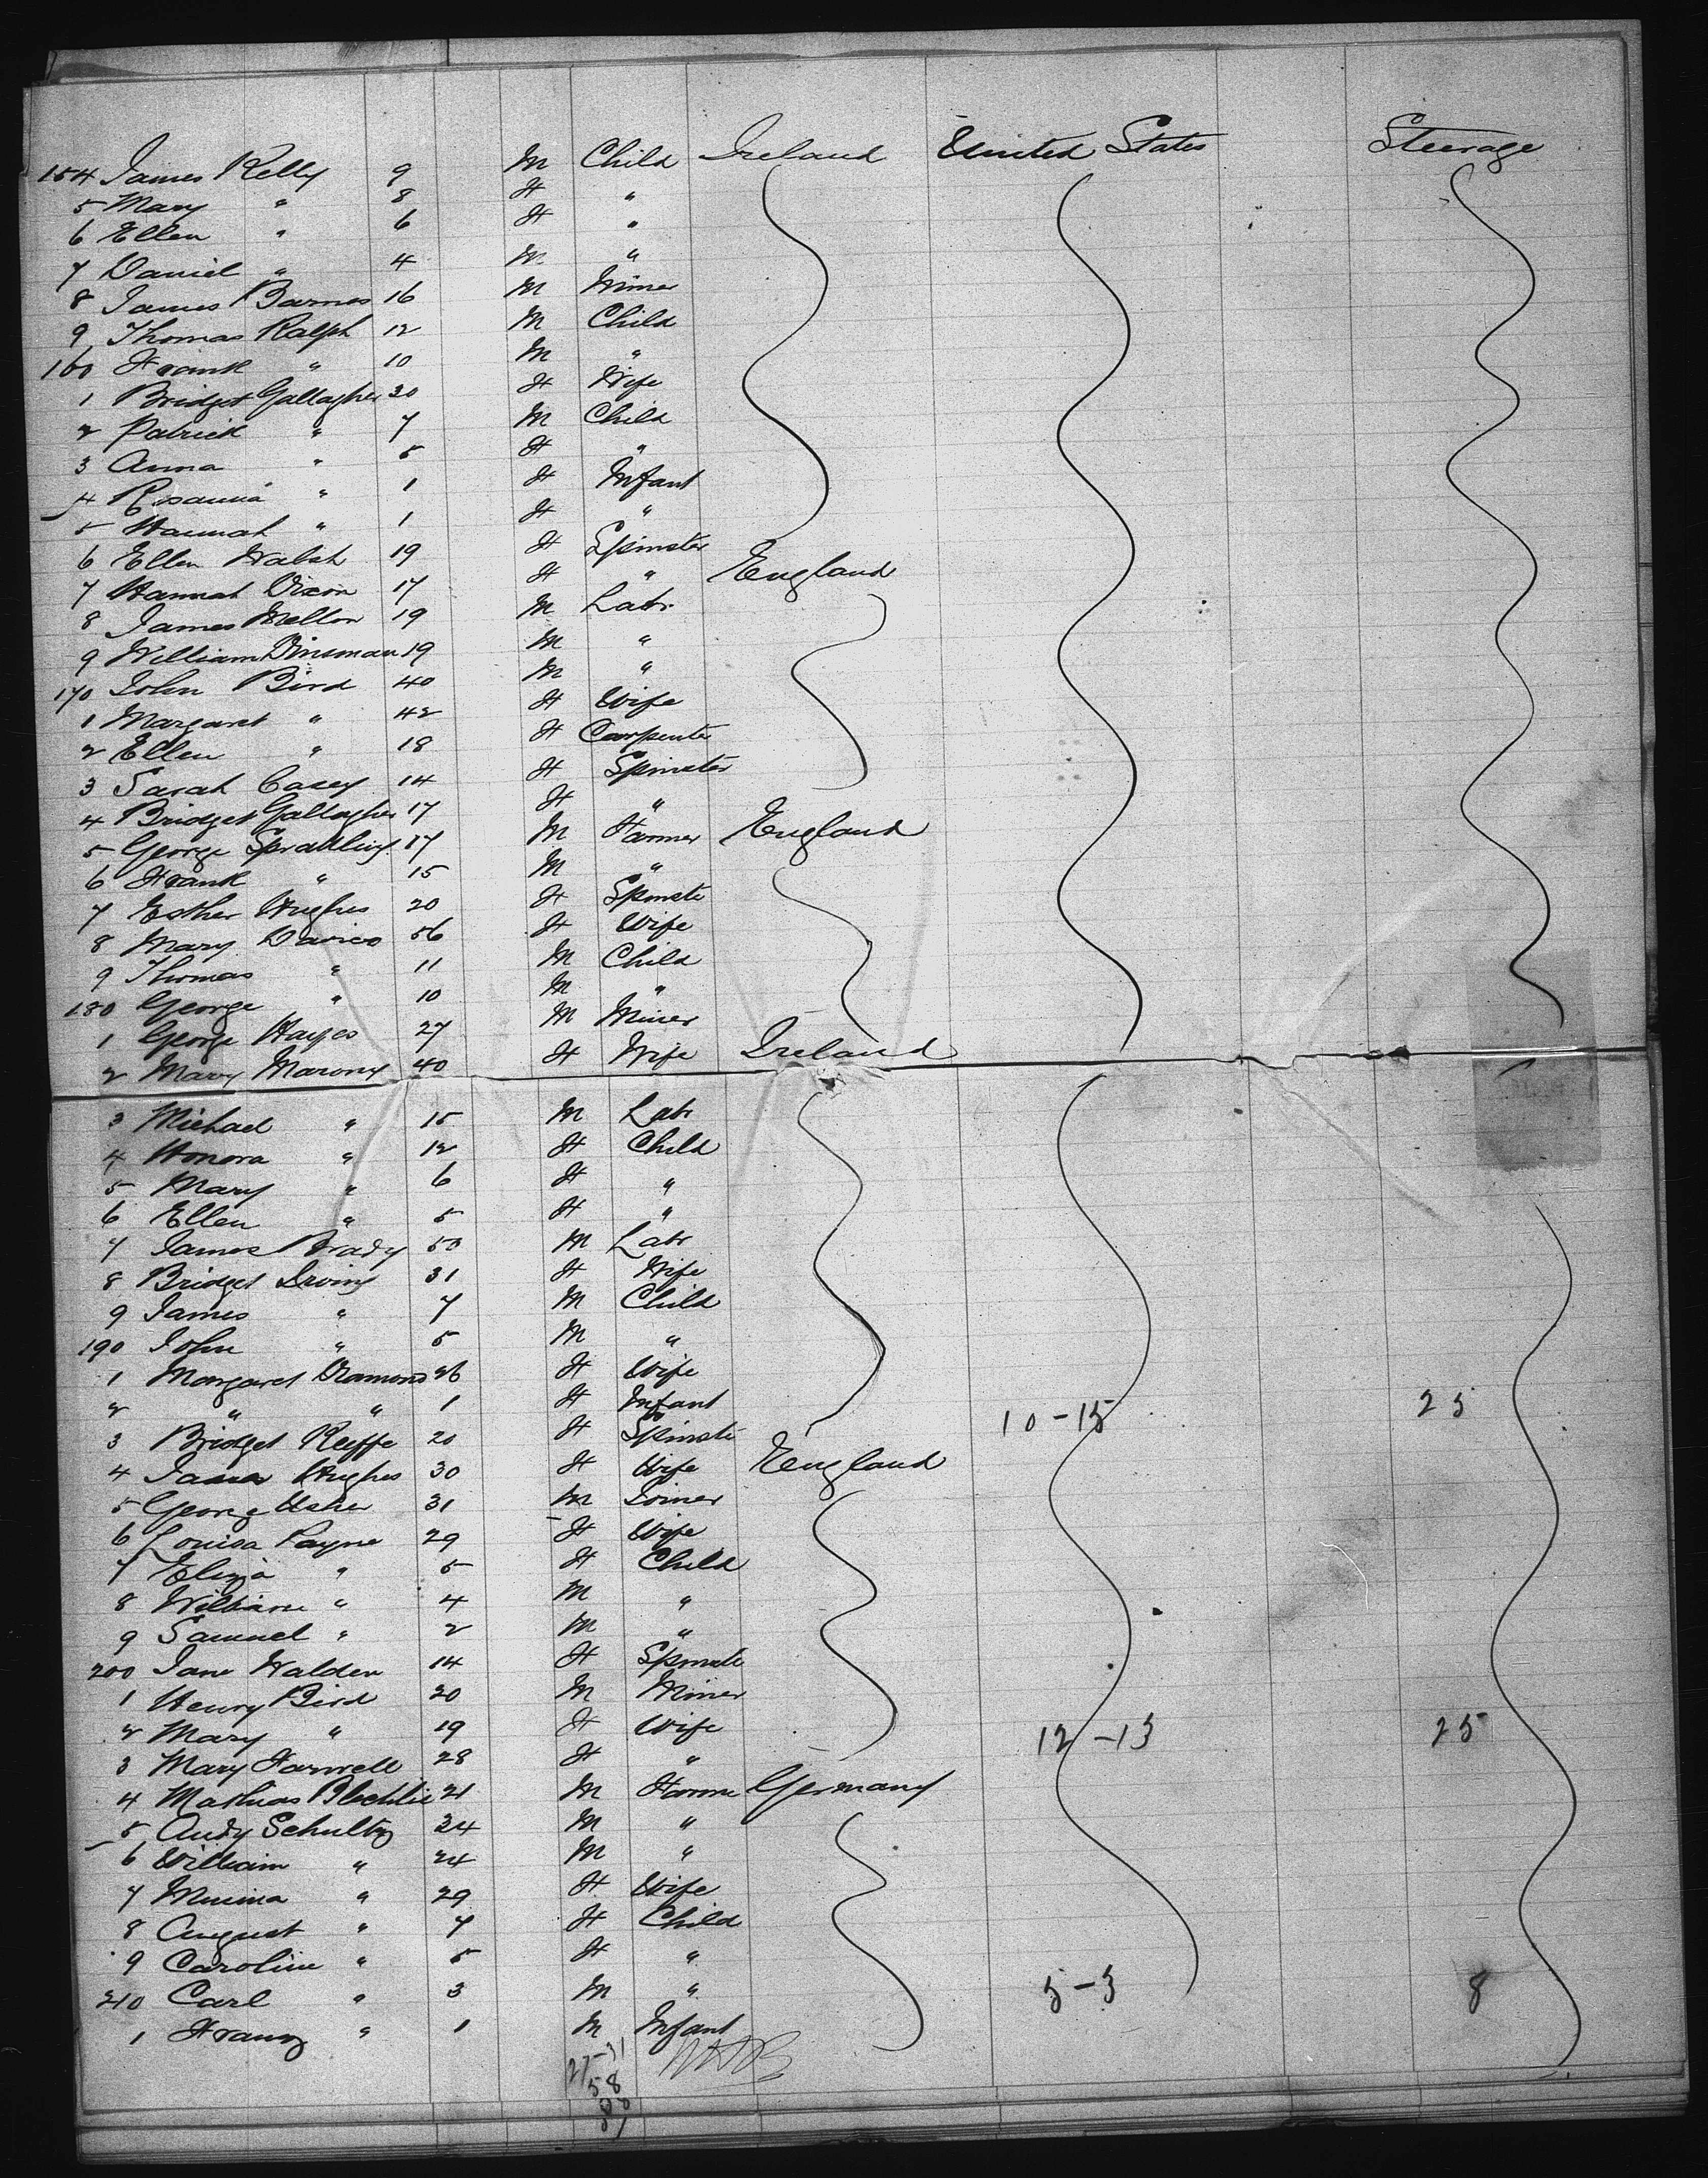 154 James Kelly 9 M Child Ireland United States Steerage
5 Mary " 8 F "
6 Ellen " 6 F "
7 Daniel " 4 M "
8 James Barnes 16 M Miner
9 Thomas Ralph 12 M Child
160 Frank " 10 M "
1 Bridget Gallagher 30 F Wife
2 Patrick " 7 M Child
3 Anna " 5 F "
4 Rosanna " 1 F Infant
5 Hannah " 1 F "
6 Ellen Walsh 19 F Spinster
7 Hannah Dixon 17 F " England
8 James Mellor 19 M Labr
9 William Dinsman 19 M "
170 John Bird 40 M "
1 Margaret " 42 F Wife
2 Ellen " 18 F Carpenter
3 Sarah Casey 14 F Spinster
4 Bridget Gallagher 17 F "
5 George Spradling 17 M Farmer England
6 Frank " 15 M "
7 Esther Hughes 20 F Spinste
8 Mary Davies 56 F Wife
9 Thomas " 11 M Child
180 George " 10 M "
1 George Hayes 27 M Miner
2 Mary Marony 40 F Wife Ireland
3 Michael " 15 M Labr
4 Honora " 12 F Child
5 Mary " 6 F "
6 Ellen " 5 F "
7 James Brady 50 M Labr
8 Bridget Irving 31 F Wife
9 James " 7 M Child
190 John " 5 M "
1 Margaret Diamond 26 F Wife
2 " " 1 F Infant 10-15 25
3 Bridget Keeffe 20 F Spinste
4 Hughes 30 F Wife England
5 George Usher 31 M Joiner
6 Louisa Payne 29 F Wife
7 Eliza " 5 F Child
8 William " 4 M "
9 Samuel " 2 M "
200 Jane Walden 14 F Spinste
1 Henry Bird 20 M Miner
2 Mary " 19 F Wife 12-13 25
3 Mary Farwell 28 F "
4 Mathias 21 M Farme Germany
5 Andy Schultz 34 M "
6 William " 24 M "
7 Minna " 29 F Wife
8 August " 7 F Child
9 Caroline " 5 F "
210 Carl " 3 M " 5-3 8
1 Franz " 1 M Infant
27-31
58